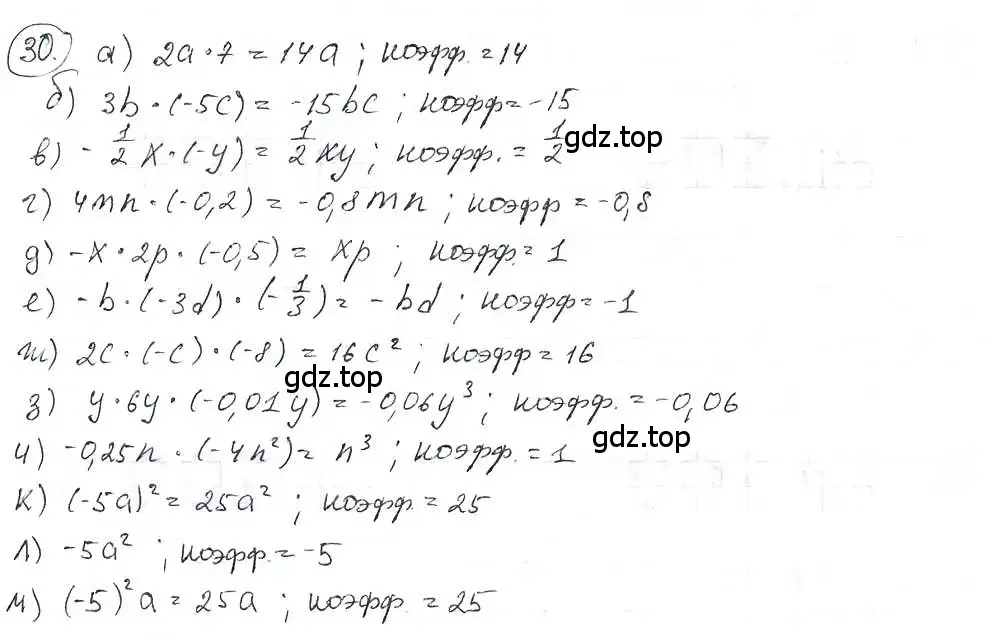 30. а) 2a·7 = 14a ; коэфф. = 14
б) 3b·(-5c) = -15bc ; коэфф = -15
gdz.top
в) -1/2 x·(-y) = 1/2 xy ; коэфф. = 1/2
г) 4mn·(-0,2) = -0,8mn ; коэфф = -0,8
д) -x·2p·(-0,5) = xp ; коэфф. = 1
е) -b·(-3d)·(-1/3) = -bd ; коэфф = -1
ж) 2c·(-c)·(-8) = 16c² ; коэфф = 16
gdz.top
з) y·6y·(-0,01y) = -0,06y³ ; коэфф. = -0,06
gdz.top
и) -0,25n·(-4n²) = n³ ; коэфф. = 1
к) (-5a)² = 25a² ; коэфф. = 25
л) -5a² ; коэфф. = -5
м) (-5)²a = 25a ; коэфф. = 25